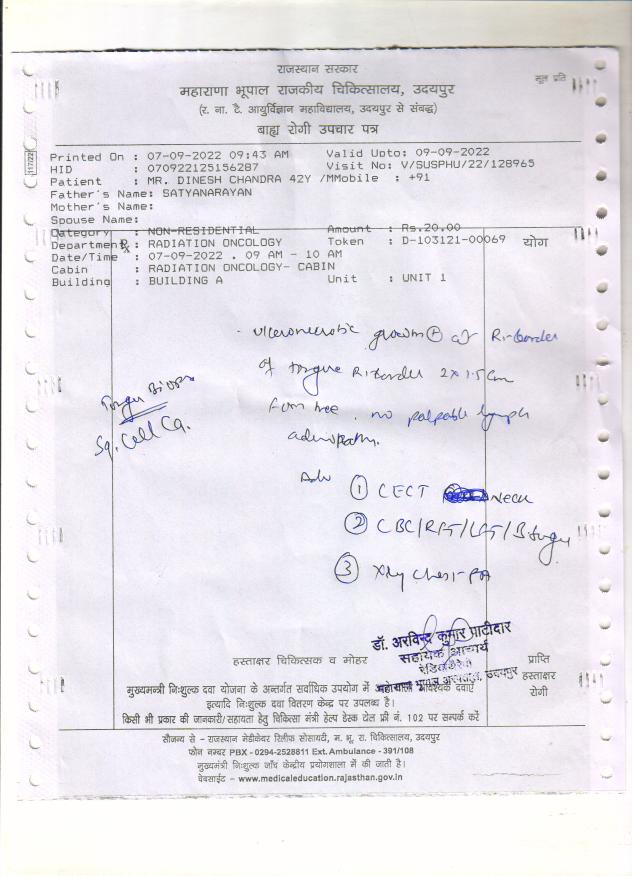 राजस्थान सरकार
मूल प्रति
महाराणा भूपाल राजकीय चिकित्सालय, उदयपुर
(र. ना. टै. आयुर्विज्ञान महाविद्यालय, उदयपुर से संबद्ध)
बाह्य रोगी उपचार पत्र
117/22
Printed On : 07-09-2022 09:43 AM Valid Upto: 09-09-2022
HID : 070922125156287 Visit No: V/SUSPHU/22/128965
Patient : MR. DINESH CHANDRA 42Y /MMobile : +91
Father's Name: SATYANARAYAN
Mother's Name:
Spouse Name:
Category : NON-RESIDENTIAL Amount : Rs.20.00
Department : RADIATION ONCOLOGY Token : D-103121-00069 योग
Date/Time : 07-09-2022 . 09 AM - 10 AM
Cabin : RADIATION ONCOLOGY- CABIN
Building : BUILDING A Unit : UNIT 1
growth + at Rt-border
of tongue Rt-border 2x1.5cm
no palpable lymph
Sq. Cell Ca.
Adv
① CECT Neck
② CBC/RFT/LFT/B.
③ Xray Chest-PA
डॉ. अरविन्द कुमार पाटीदार
सहायक आचार्य
हस्ताक्षर चिकित्सक व मोहर
उदयपुर
प्राप्ति
हस्ताक्षर
रोगी
मुख्यमन्त्री निःशुल्क दवा योजना के अन्तर्गत सर्वाधिक उपयोग में आवश्यक दवाएँ
इत्यादि निःशुल्क दवा वितरण केन्द्र पर उपलब्ध है।
किसी भी प्रकार की जानकारी/सहायता हेतु चिकित्सा मंत्री हेल्प डेस्क टोल फ्री नं. 102 पर सम्पर्क करें
सौजन्य से – राजस्थान मेडीकेयर रिलीफ सोसायटी, म. भू. रा. चिकित्सालय, उदयपुर
फोन नम्बर PBX - 0294-2528811 Ext. Ambulance - 391/108
मुख्यमंत्री निःशुल्क जाँच केन्द्रीय प्रयोगशाला में की जाती है।
वेबसाईट – www.medicaleducation.rajasthan.gov.in